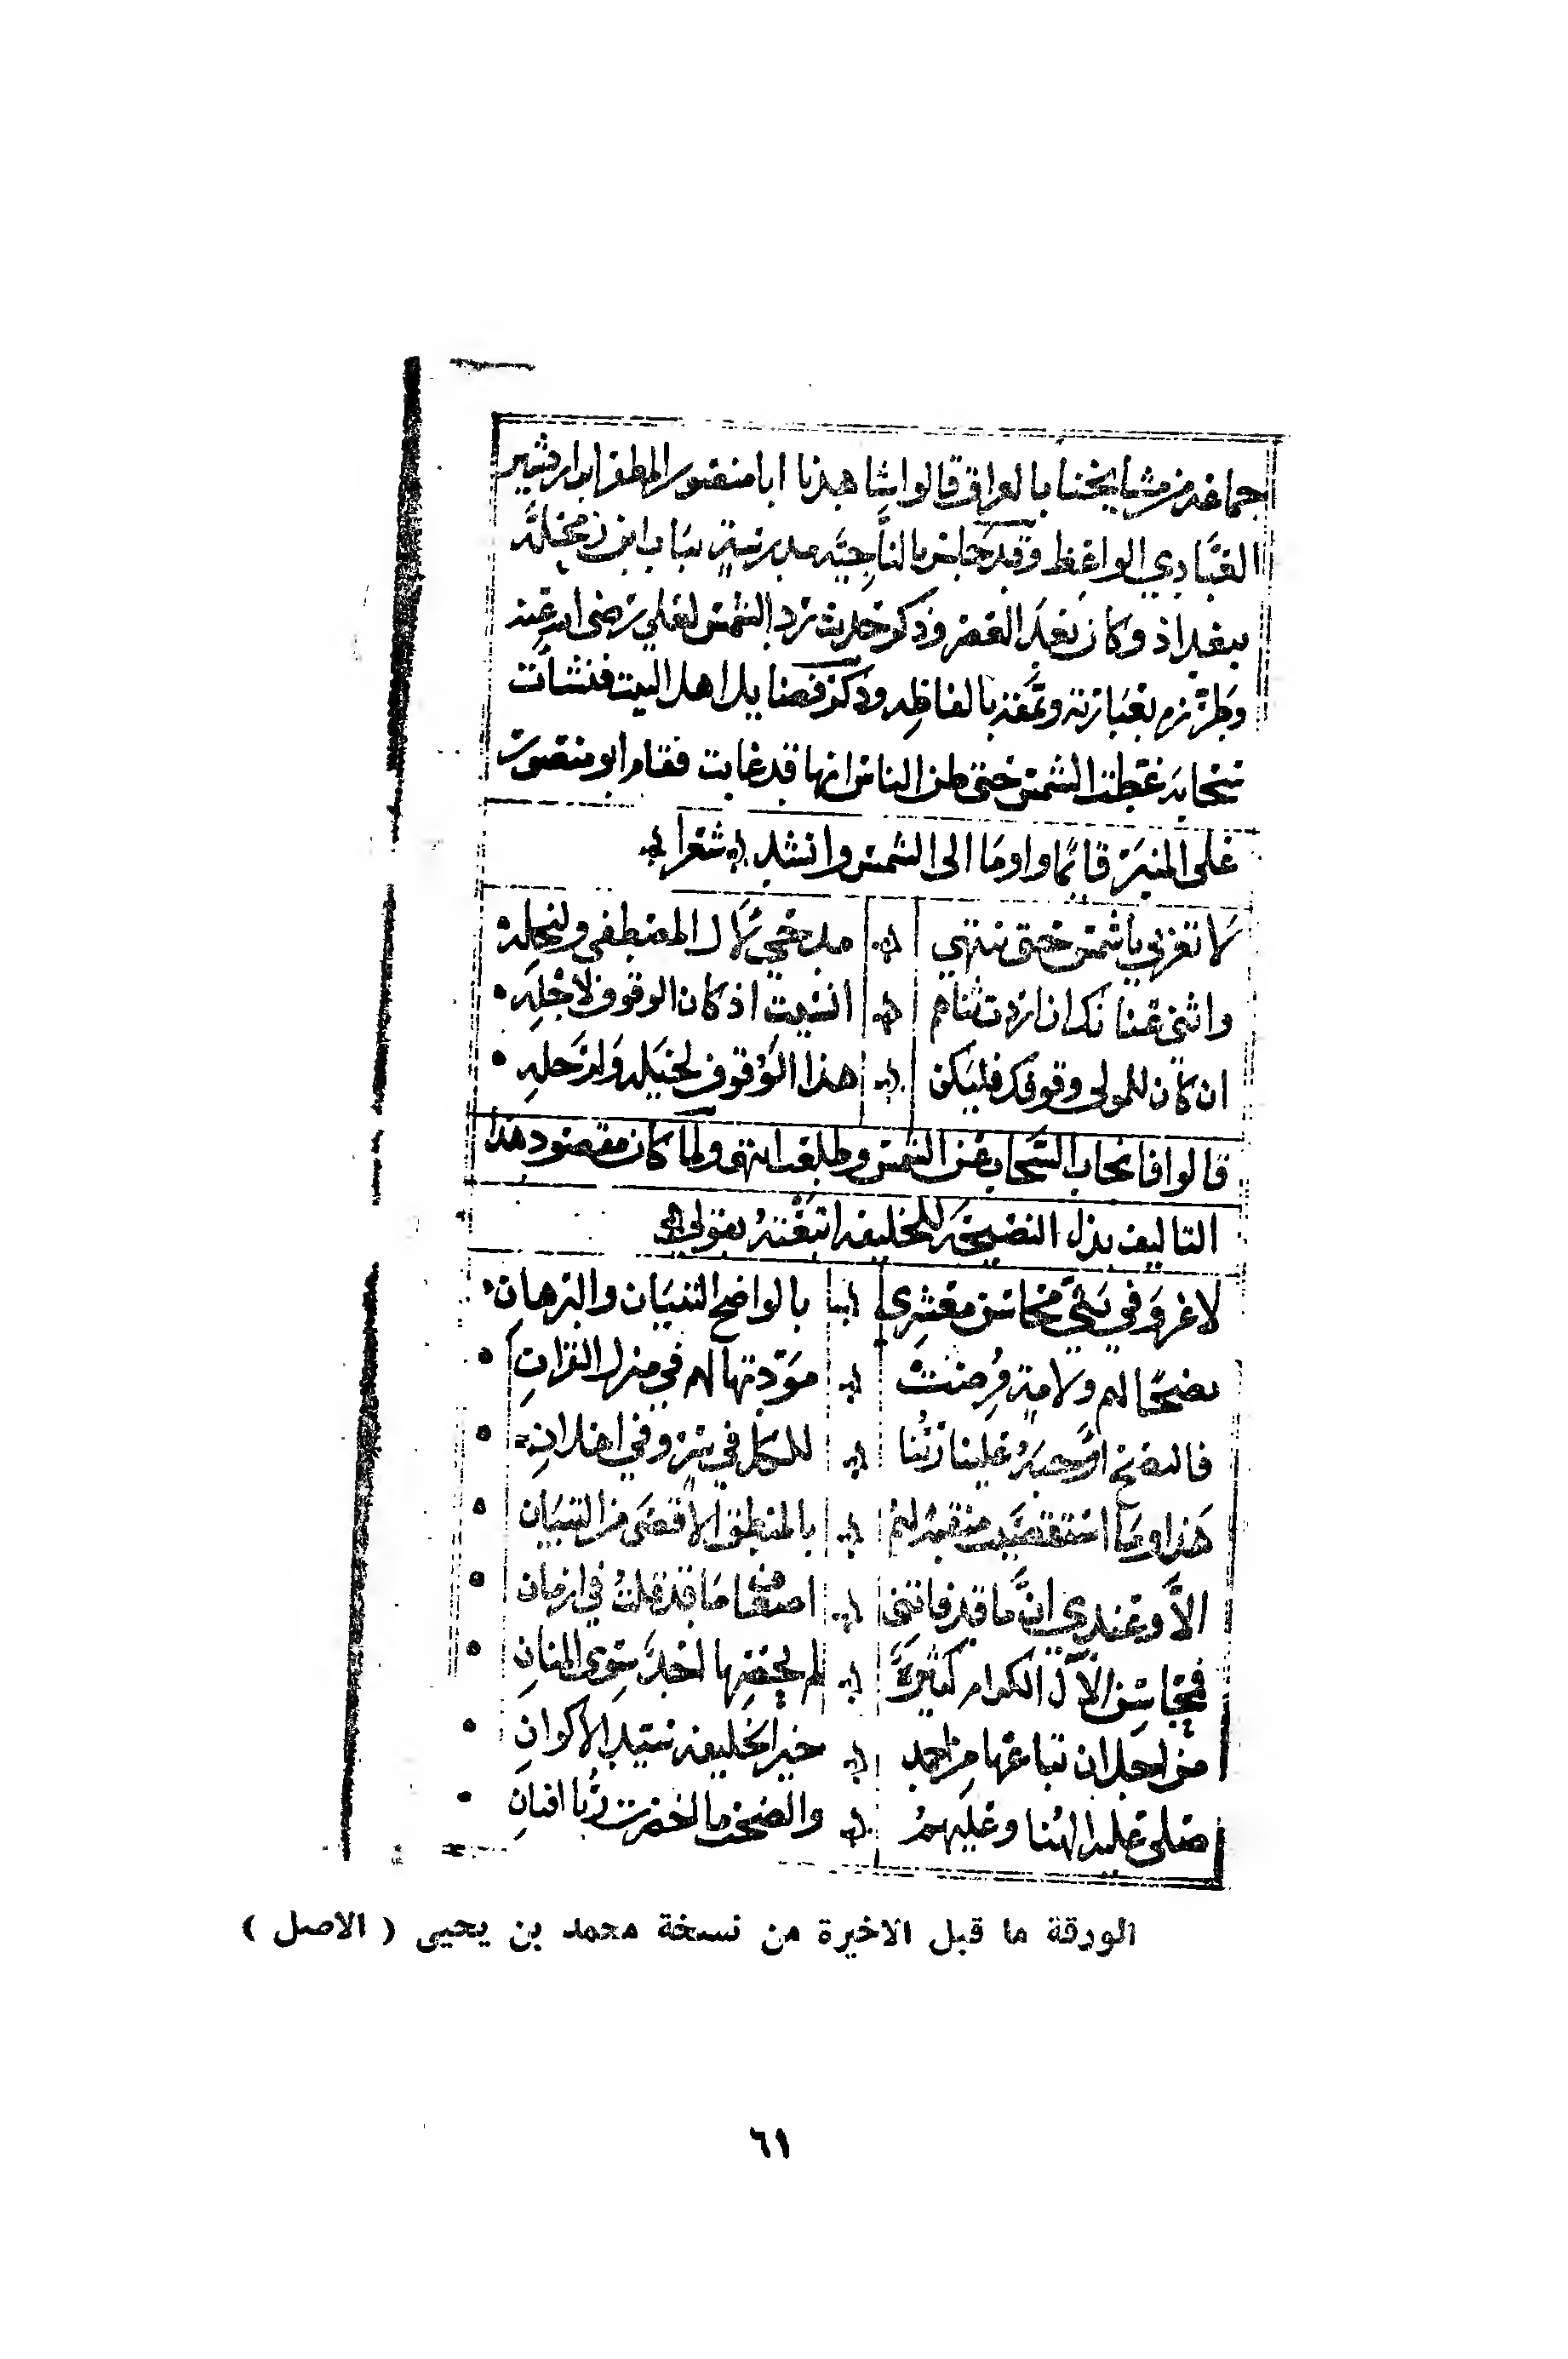 جماعة من مشايخنا بالعراق قالوا شاهدنا ابا منصور المظفر ابن اردشير
العبادي الواعظ وقد جلس بالناجيه مدرسة بباب ابرز محلة
ببغداذ وكان بعد العصر وذكر حديث رد الشمس لعلي رضي الله عنه
وطرزه بعبارته ونمقه بالفاظه وذكر فضايل اهل البيت فنشأت
سحابه غطت الشمس حتى ظن الناس انها قد غابت فقام ابو منصور
على المنبر قايمًا واوما الى الشمس وانشد شعرا
لا تغربي يا شمس حتى ينتهي مدحي لآل المصطفى ولنجله
واثني عنانك ان اردت ثناهم انسيت اذ كان الوقوف لاجلِه
ان كان للمولى وقوفك فليكن هذا الوُقوف لخيله ولرَجلهِ
قالوا فانجاب السَّحاب عن الشمس وطلعت انتهى ولما كان مقصود هذا
التاليف بذل النصيحة للخليفه اتبعْتهُ بقولي
لا غروَ في بثّي محاسن معشرِي بالواضح التبيان والبرهان
نصحًا لهم ولامةٍ فُرضتْ مودّتها لهم في منزل القرانِ
فالنصح اوْجبهُ علينا ربُّنا للكل في سرٍ وفي اعلانِ
هَذا وما استقصيت منقبة لهمْ بالمنطق الاقصَى من التبيان
الاَّ وعندي انَّ ما قد فاتني اضعاف ما قد قلتُ في ازمان
فمحاسِن الآل الكرام كثيرةٌ لم يحصِها احدٌ سِوى المنانِ
من اجل ان تباعها من احمد خير الخليفه سيد الاكوانِ
صلى عليه الهُنا وعليهمُ والصحب ما اخضرت رُبا افنانِ
الورقة ما قبل الاخيرة من نسخة محمد بن يحيى ( الاصل )
٦١